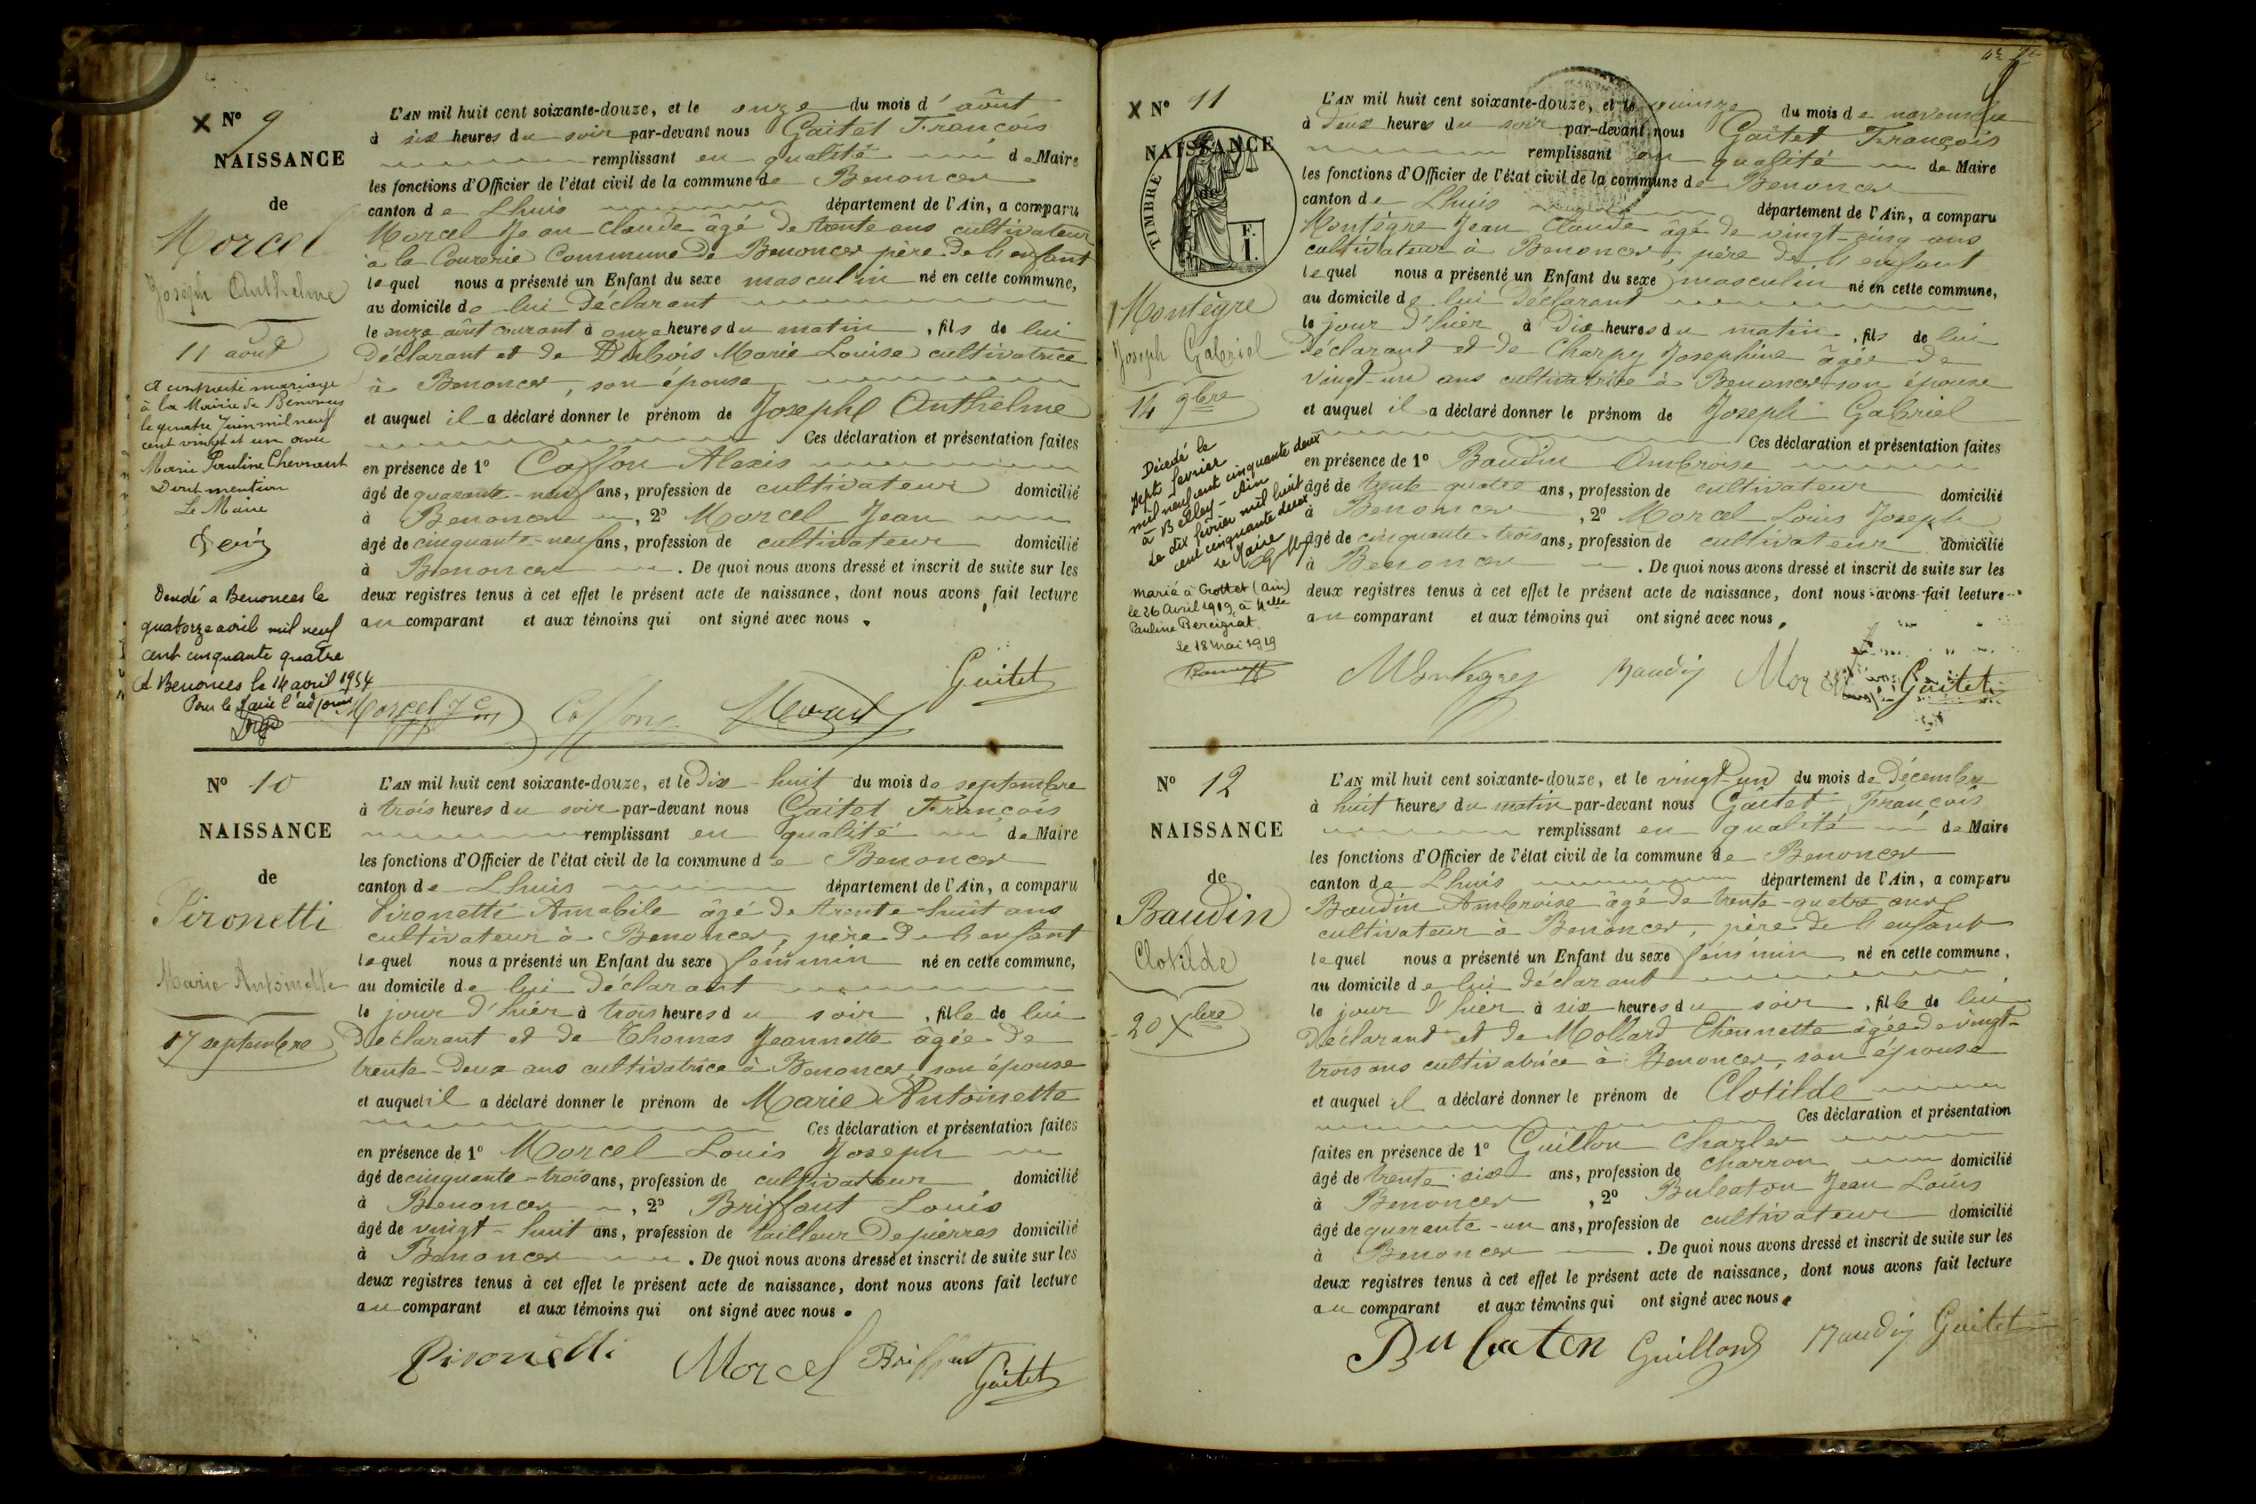 X Nº 9
NAISSANCE
de
Morcel
Joseph Anthelme
11 août
A contracté mariage
à la Mairie de Bénonces
le quatre Juin mil neuf
cent vingt et un avec
Marie Pauline Chevrant
Dont mention
Le Maire
Décédé a Benonces le
quatorze avril mil neuf
cent cinquante quatre
A Benonces le 14 avril 1954
Pour le Maire l'adjoint
L'AN mil huit cent soixante-douze, et le onze du mois d'août
à six heures du soir par-devant nous Gaitet François
remplissant en qualité de Maire
les fonctions d'Officier de l'état civil de la commune de Benonces
canton de Lhuis département de l'Ain, a comparu
Morcel Jean Claude âgé de trente ans cultivateur
à la Courerie Commune de Benonces père de l'enfant
lequel nous a présenté un Enfant du sexe masculin né en cette commune,
au domicile de lui déclarant
le onze août courant à onze heures du matin, fils de lui
déclarant et de Dubois Marie Louise cultivatrice
à Benonces, son épouse
et auquel il a déclaré donner le prénom de Joseph Anthelme
Ces déclaration et présentation faites
en présence de 1º Caffon Alexis
âgé de quarante-neuf ans, profession de cultivateur domicilié
à Benonces, 2º Morcel Jean
âgé de cinquante-neuf ans, profession de cultivateur domicilié
à Benonces. De quoi nous avons dressé et inscrit de suite sur les
deux registres tenus à cet effet le présent acte de naissance, dont nous avons fait lecture
au comparant et aux témoins qui ont signé avec nous.
Morcel J C Caffon Gaitet
Nº 10
NAISSANCE
de
Pironetti
Marie Antoinette
17 septembre
L'AN mil huit cent soixante-douze, et le Dix-huit du mois de septembre
à trois heures du soir par-devant nous Gaitet François
remplissant en qualité de Maire
les fonctions d'Officier de l'état civil de la commune de Benonces
canton de Lhuis département de l'Ain, a comparu
Pironetti Amabile âgé de trente-huit ans
cultivateur à Benonces, père de l'enfant
lequel nous a présenté un Enfant du sexe féminin né en cette commune,
au domicile de lui déclarant
le jour d'hier à trois heures du soir, fille de lui
Déclarant et de Thomas Jeannette âgée de
trente-deux ans cultivatrice à Benonces, son épouse
et auquel il a déclaré donner le prénom de Marie Antoinette
Ces déclaration et présentation faites
en présence de 1º Morcel Louis Joseph
âgé de cinquante-trois ans, profession de cultivateur domicilié
à Benonces, 2º Briffaut Louis
âgé de vingt-huit ans, profession de tailleur de pierres domicilié
à Benonces. De quoi nous avons dressé et inscrit de suite sur les
deux registres tenus à cet effet le présent acte de naissance, dont nous avons fait lecture
au comparant et aux témoins qui ont signé avec nous.
Pironetti Morcel Briffaut Gaitet
X Nº 11
NAISSANCE
de
TIMBRE
F.
1.
Montègre
Joseph Gabriel
14 9bre
Décédé le
sept février
mil neuf cent cinquante deux
à Belley - Ain
Le dix février mil huit
cent cinquante deux
Le Maire
marié à Crottet (Ain)
le 26 Avril 1919, à Melle
Pauline Bercignat
Le 18 mai 1919
L'AN mil huit cent soixante-douze, et le quinze du mois de novembre
à deux heures du soir par-devant nous Gaitet François
remplissant en qualité de Maire
les fonctions d'Officier de l'état civil de la commune de Benonces
canton de Lhuis département de l'Ain, a comparu
Montègre Jean Claude âgé de vingt-cinq ans
cultivateur à Benonces, père de l'enfant
lequel nous a présenté un Enfant du sexe masculin né en cette commune,
au domicile de lui déclarant
le jour d'hier à dix heures du matin, fils de lui
déclarant et de Charpy Josephine âgée de
vingt-un ans cultivatrice à Benonces son épouse
et auquel il a déclaré donner le prénom de Joseph Gabriel
Ces déclaration et présentation faites
en présence de 1º Baudin Ambroise
âgé de trente quatre ans, profession de cultivateur domicilié
à Benonces, 2º Morcel Louis Joseph
âgé de cinquante-trois ans, profession de cultivateur domicilié
à Benonces. De quoi nous avons dressé et inscrit de suite sur les
deux registres tenus à cet effet le présent acte de naissance, dont nous avons fait lecture
au comparant et aux témoins qui ont signé avec nous.
Montegre Baudin Morcel Gaitet
Nº 12
NAISSANCE
de
Baudin
Clotilde
20 Xbre
L'AN mil huit cent soixante-douze, et le vingt-un du mois de Décembre
à huit heures du matin par-devant nous Gaitet François
remplissant en qualité de Maire
les fonctions d'Officier de l'état civil de la commune de Benonces
canton de Lhuis département de l'Ain, a comparu
Baudin Ambroise âgé de trente-quatre ans
cultivateur à Benonces, père de l'enfant
lequel nous a présenté un Enfant du sexe féminin né en cette commune,
au domicile de lui déclarant
le jour d'hier à six heures du soir, fille de lui
Déclarant et de Mollard Etiennette âgée de vingt-
trois ans cultivatrice à Benonces, son épouse
et auquel il a déclaré donner le prénom de Clotilde
Ces déclaration et présentation
faites en présence de 1º Guillon Charles
âgé de trente-six ans, profession de charron domicilié
à Benonces, 2º Bubaton Jean Louis
âgé de quarante-un ans, profession de cultivateur domicilié
à Benonces. De quoi nous avons dressé et inscrit de suite sur les
deux registres tenus à cet effet le présent acte de naissance, dont nous avons fait lecture
au comparant et aux témoins qui ont signé avec nous.
Bubaton Guillond Baudin Gaitet